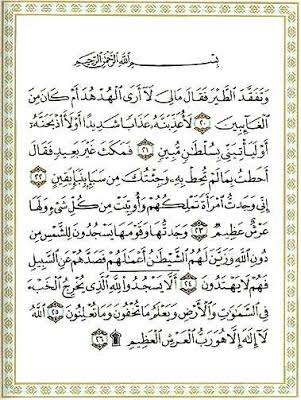 بِسْمِ اللَّهِ الرَّحْمَٰنِ الرَّحِيمِ
وَتَفَقَّدَ الطَّيْرَ فَقَالَ مَالِيَ لَآ أَرَى الْهُدْهُدَ أَمْ كَانَ مِنَ
الْغَآئِبِينَ ٢٠ لَأُعَذِّبَنَّهُ عَذَابًا شَدِيدًا أَوْ لَأَاْذْبَحَنَّهُ
أَوْ لَيَأْتِيَنِّي بِسُلْطَانٍ مُّبِينٍ ٢١ فَمَكَثَ غَيْرَ بَعِيدٍ فَقَالَ
أَحَطتُ بِمَا لَمْ تُحِطْ بِهِ وَجِئْتُكَ مِن سَبَإٍ بِنَبَإٍ يَقِينٍ ٢٢
إِنِّي وَجَدتُّ امْرَأَةً تَمْلِكُهُمْ وَأُوتِيَتْ مِن كُلِّ شَيْءٍ وَلَهَا
عَرْشٌ عَظِيمٌ ٢٣ وَجَدتُّهَا وَقَوْمَهَا يَسْجُدُونَ لِلشَّمْسِ مِن
دُونِ اللَّهِ وَزَيَّنَ لَهُمُ الشَّيْطَٰنُ أَعْمَٰلَهُمْ فَصَدَّهُمْ عَنِ السَّبِيلِ
فَهُمْ لَا يَهْتَدُونَ ٢٤ أَلَّا يَسْجُدُوا لِلَّهِ الَّذِي يُخْرِجُ الْخَبْءَ
فِي السَّمَٰوَٰتِ وَالْأَرْضِ وَيَعْلَمُ مَا تُخْفُونَ وَمَا تُعْلِنُونَ ٢٥ اللَّهُ
لَآ إِلَٰهَ إِلَّا هُوَ رَبُّ الْعَرْشِ الْعَظِيمِ ۩ ٢٦